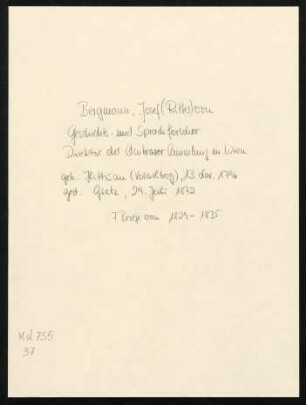 Bergmann, Josef (Ritter) von
Geschichts- und Sprachforscher
Direktor der Ambraser Sammlung in Wien
geb. Hittisau (Vorarlberg), 13 Nov. 1796
gest. Graz, 29. Juli 1872
7 Briefe von 1829-1835
Md 755
37